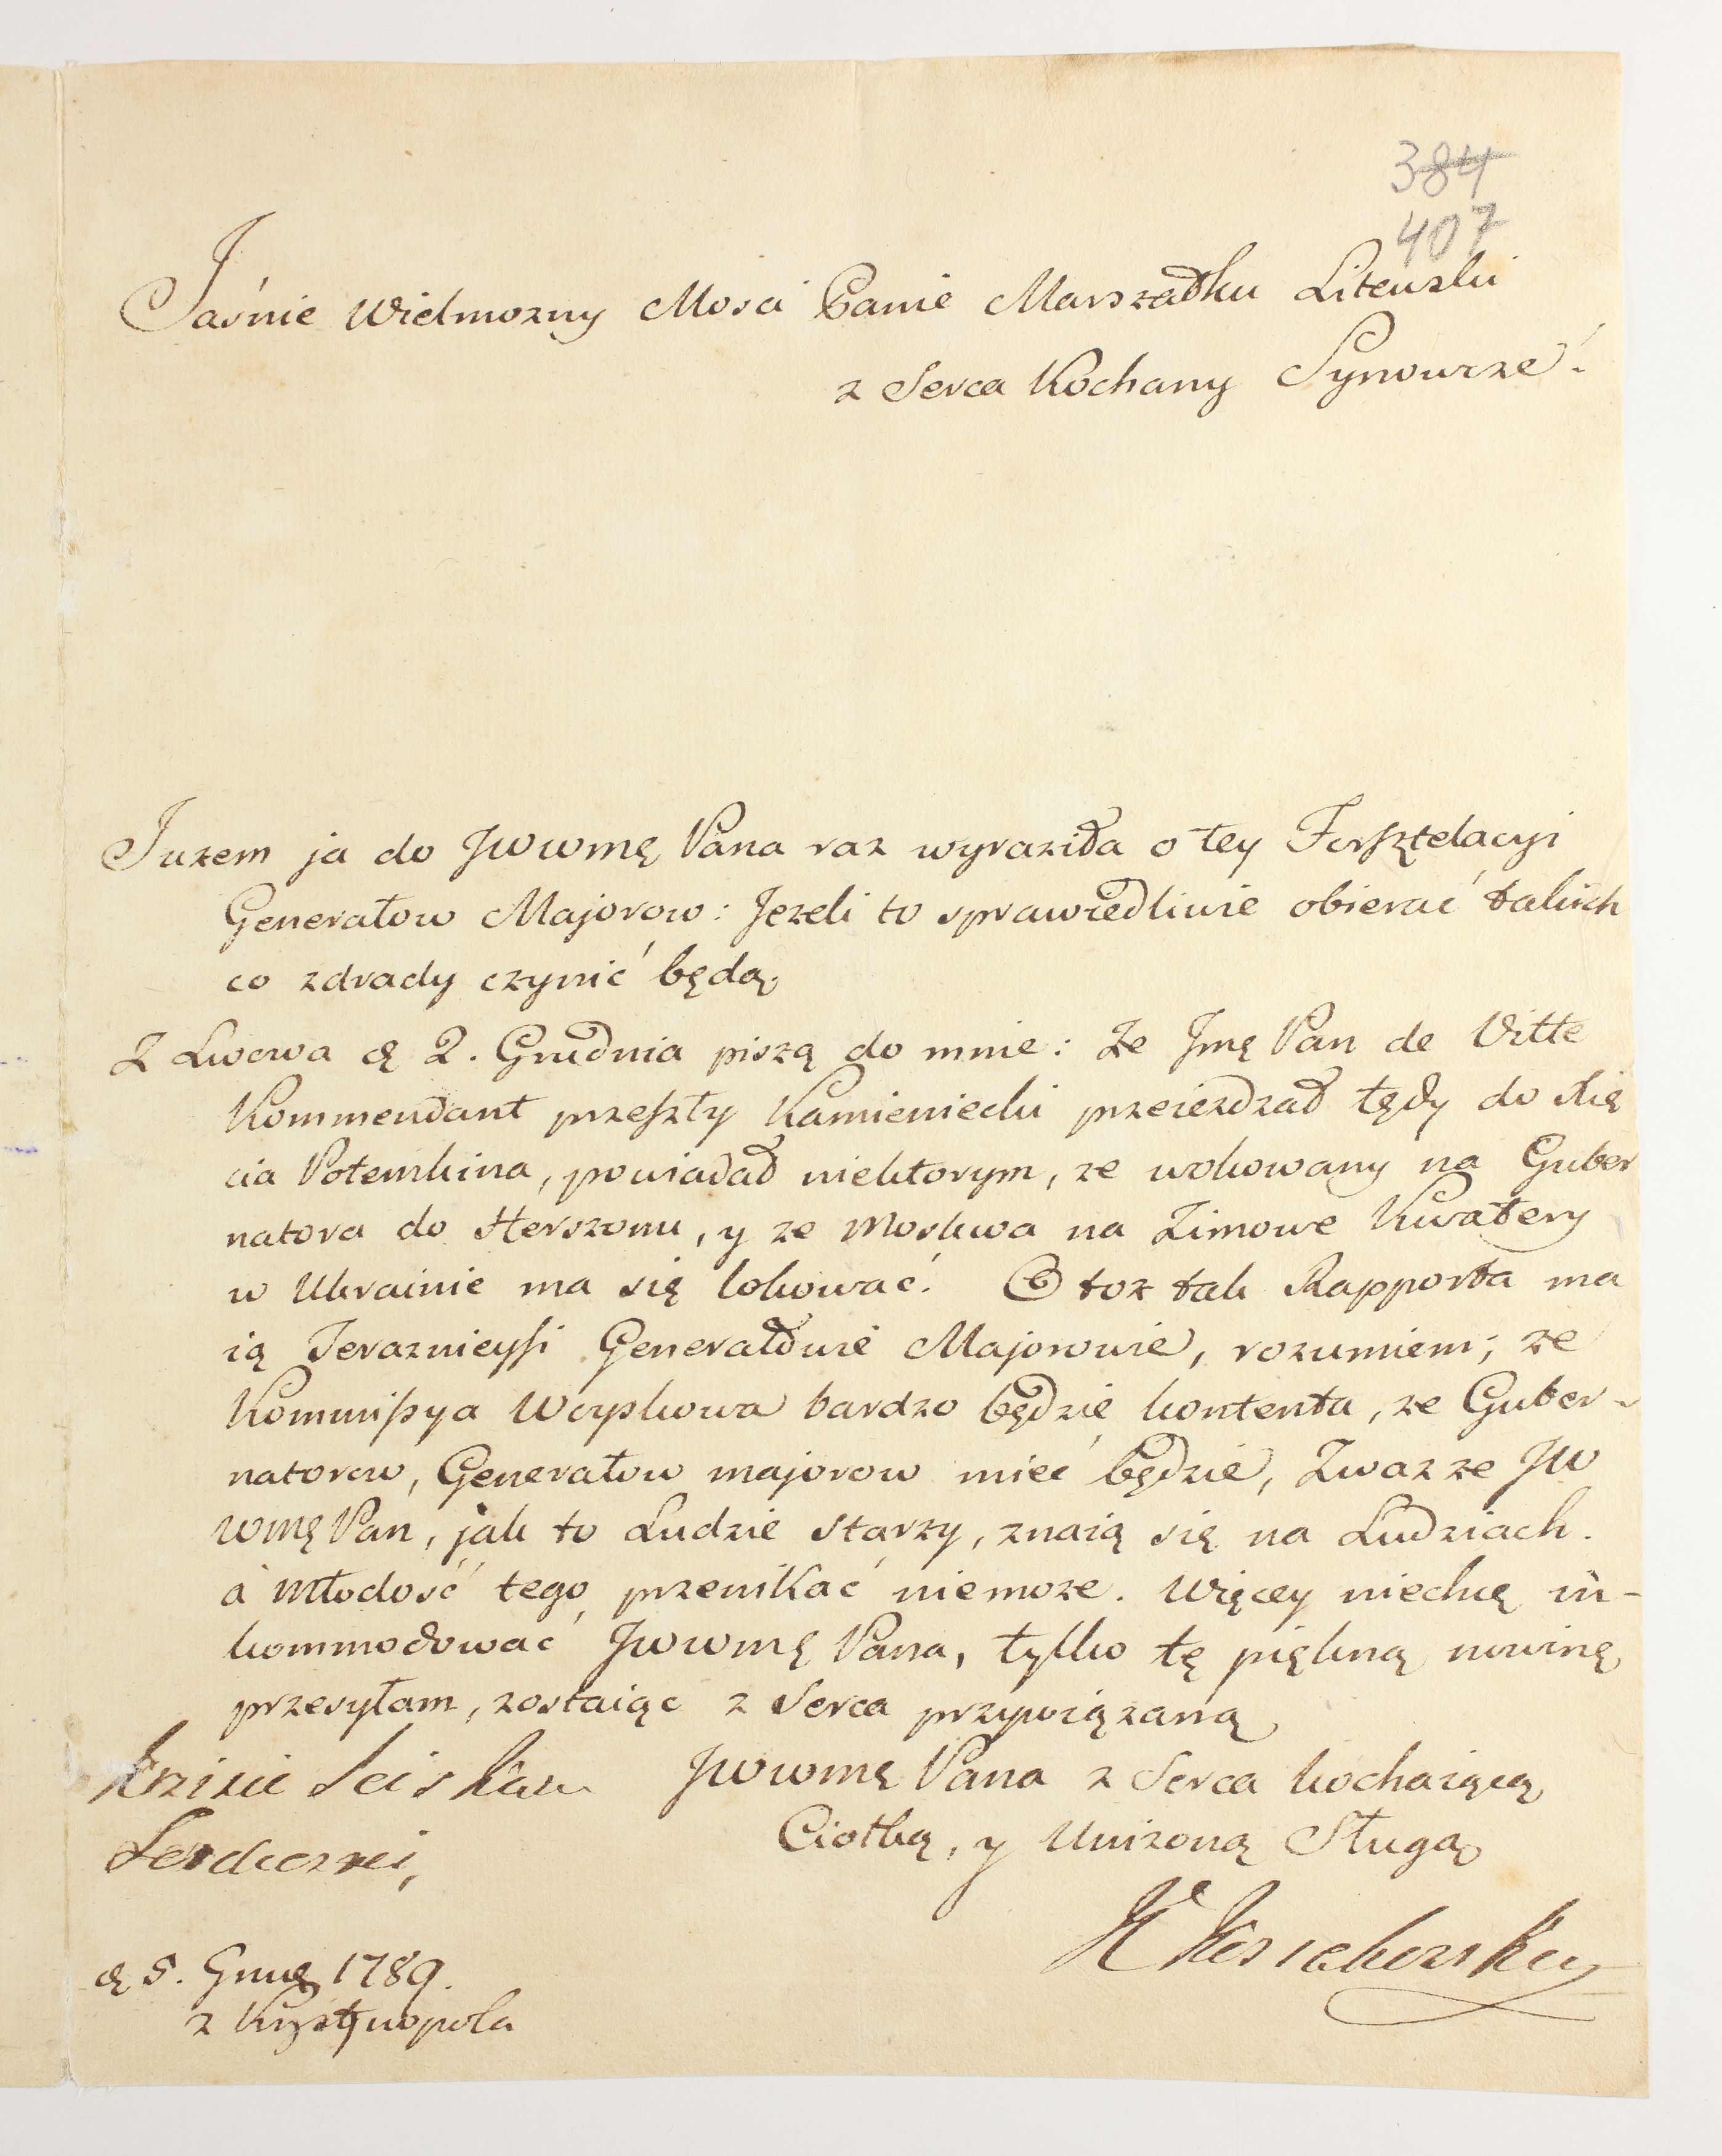 384
407
Jaśnie Wielmozny Mosci Panie Marszałku Litewski
z Serca Kochany Synowcze
Juzem ja do JWWMę Pana raz wyraziła o tey
Generałow Majorow: Jezeli to sprawiedliwie obierać takich
co zdrady czynić będą.
Z Lwowa dę 2. Grudnia piszą do mnie: Ze Jmę Pan de Vitte
Kommendant przeszły Kamieniecki przeiezdzał tędy do Xię
cia Potemkina, powiadał niektorym, ze wokowany na Guber
natora do Herszonu, y ze Moskwa na Zimowe Kwatery
w Ukrainie ma się lokować. Otoz tak Rapporta ma
ią Teraznieyssi Generałowie Majorowie, rozumiem, ze
Kommissya Woyskowa bardzo będzie kontenta, ze Guber-
natorow, Generałow majorow mieć będzie, Zwaz ze JW
WMę Pan, jak to Ludzie starzy, znaią się na Ludziach.
a Młodość tego przenikać niemoze. Więcey niechcę in-
kommodować JWWMę Pana, tylko tę piękną nowinę
przesyłam, zostaiąc z Serca przywiązaną
JWWMę Pana z Serca kochaiącą
Ciotką, y Unizoną Sługą
K Kossakowska
dę 5. Grudę 1789.
z Krystynopola